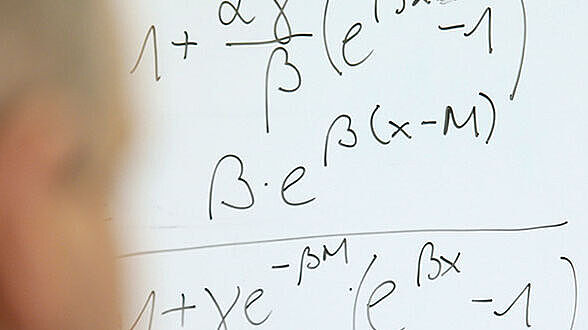 1 + αγ/β (e^βx - 1)
β · e^β(x-M)
1 + γe^-βM · (e^βx - 1)